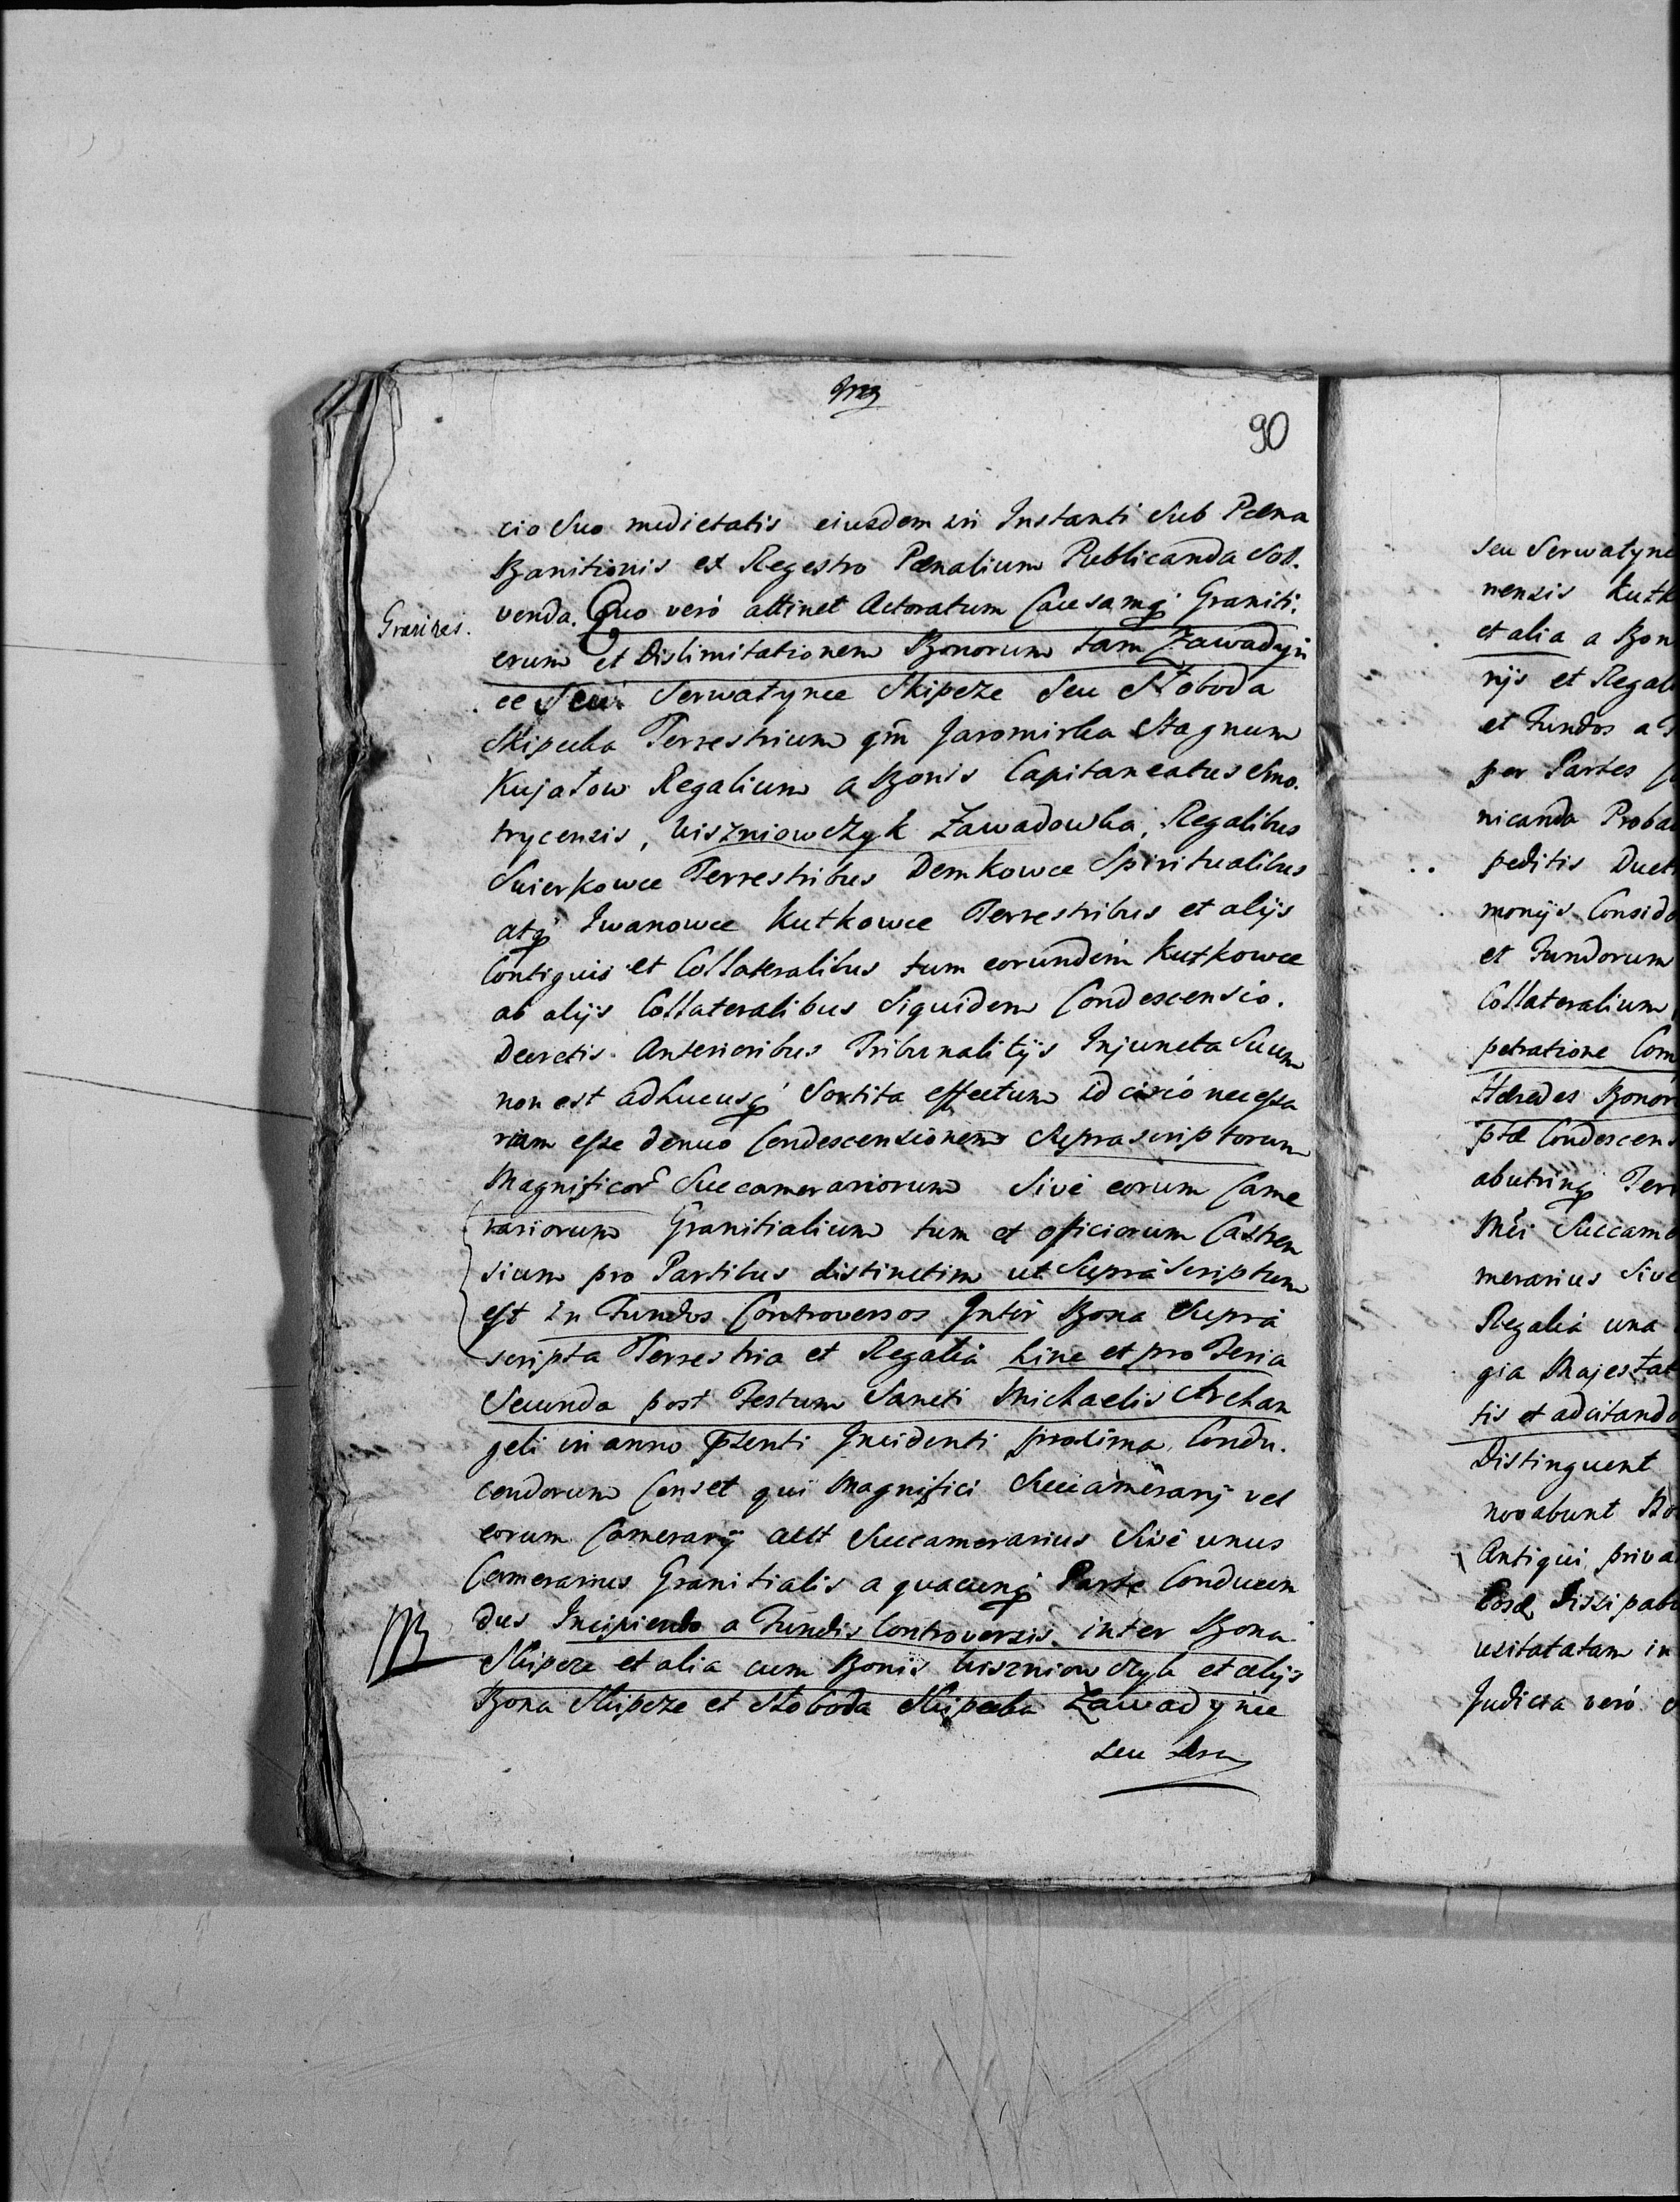 90
cio suo medietatis eiusdem in Instanti sub Pæna
Banitionis ex Regestro Pænalium Publicanda Sol.
Granities. venda. Quo veró attinet Actoratum Causamq Graniti.
erum et Dislimitationem Bonorum tam Zawadyn
ce seu Serwatynce Skipcze seu Słoboda
Skipecka Terrestrium qm Jaromirka Stagnum
Kujatow Regalium a Bonis Capitaneatus Smo.
trycensis, Wiszniowczyk Zawadowka, Regalibus
Swierkowce Terrestribus Demkowce Spiritualibus
atq Iwanowce Kutkowce Terrestribus et alijs
Contiguis et Collateralibus tum eorundem Kutkowce
ab alijs Collateralibus siquidem Condescensio.
Decretis Anterioribus Tribunalitijs Injuncta Suum
non est adhucusq Sortita effectum id circó necessa
riam esse denuó Condescensionem suprascriptorum
Magnificor Succamerariorum sivé eorum Came
rariorum Granitialium tum et officiorum Castren
sium pro Partibus distinctim ut Supra Scriptum
est in Fundos Controversos Inter Bona supra
scripta Terrestria et Regalia hinc et pro Feria
Secunda post Festum Sancti Michaelis Archan
geli in anno pszenti Incidenti proxima Condu.
cendorum Censet qui Magnifici Succamerarij vel
eorum Camerarij aut Succamerarius sivé unus
Camerarius Granitialis a quacunq Parte Conducen
dus Incipiendo a Fundis Controversis inter Bona
Skipcze et alia cum Bonis Wiszniowczyk et alijs
Bona Skipcze et Słoboda Skipecka Zawadynce
seu Ser
seu Serwatynce
nensis Kutk
et alia a Bon
nijs et Regal
et Fundos a
per Partes
nicanda Proba
peditis Duct
monijs Consid
et Fundorum
Collateralium
petratione Com
Hæredes Bonor
ptæ Condescen
abutrinq Ter
Mci Succame
merarius Sive
Regalia una
gia Majestat
tis et adcitando
Distinguent
novabunt
Antiqui priva
Dissipab
usitatatam in
Judicia veró